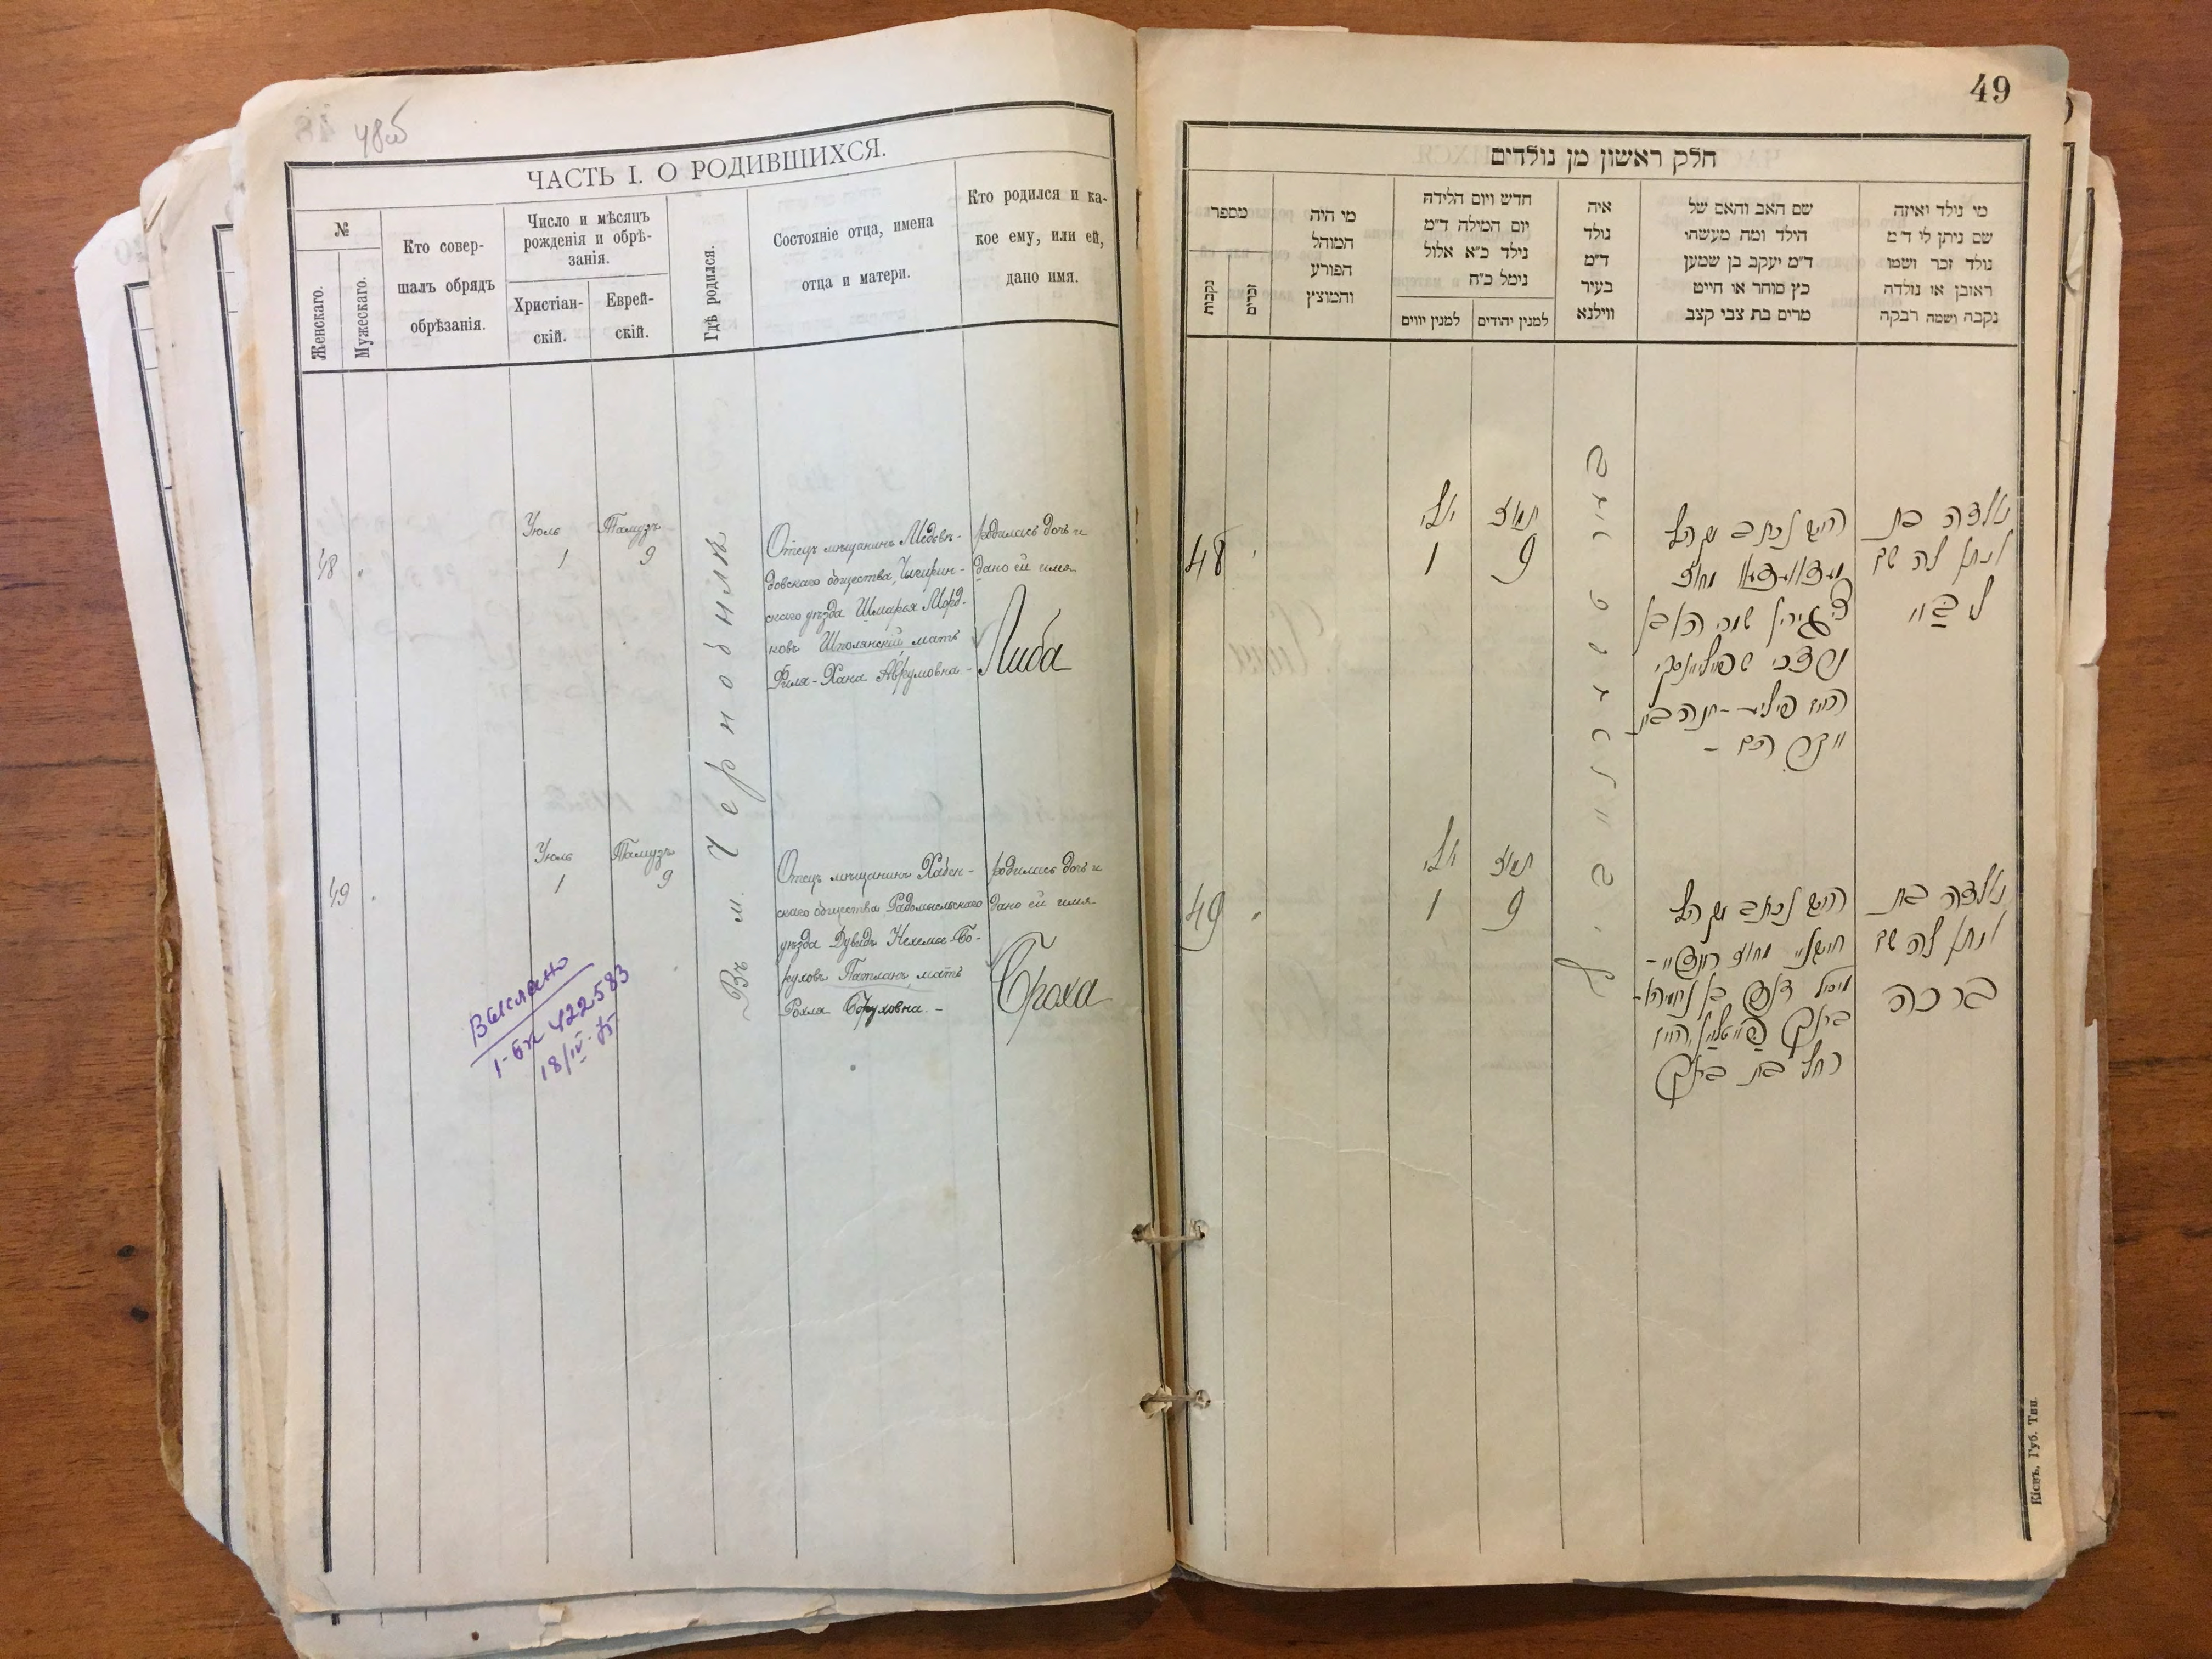 48об
ЧАСТЬ I. О РОДИВШИХСЯ.
№
Женскаго.
Мужескаго.
Кто совер-
шалъ обрядъ
обрѣзанія.
Число и мѣсяцъ
рожденія и обрѣ-
занія.
Христіан-
скій.
Еврей-
скій.
Гдѣ родился.
Состояніе отца, имена
отца и матери.
Кто родился и ка-
кое ему, или ей,
дано имя.
48
Іюль
1
Тамузъ
9
Въ м. Чернобилѣ
Отецъ мѣщанинъ Медвѣ-
довскаго общества, Чигирин-
скаго уѣзда Шмарья Морд-
ковъ Шполянскій, мать
Филя-Хана Аврумовна-
родилась дочь и
дано ей имя
Либа
49
Іюль
1
Тамузъ
9
Отецъ мѣщанинъ Хабен-
скаго общества Радомысльскаго
уѣзда Дувидъ Нехемье-Бо-
руховъ Патланъ, мать
Рохля Боруховна.-
родилась дочь и
дано ей имя
Броха
Выслано
1-БК 422583
18/IV-75
49
חלק ראשון מן נולדים
מספר
נקבות
זכרים
מי היה
המוהל
הפורע
והמוצץ
חדש ויום הלידה
יום המילה ד״מ
נילד כ״א אלול
נימל כ״ה
למנין יווים
למנין יהודים
איה
נולד
ד״מ
בעיר
ווילנא
שם האב והאם של
הילד ומה מעשהו
ד״מ יעקב בן שמעון
כץ סוחר או חייט
מרים בת צבי קצב
מי נולד ואיזה
שם ניתן לו ד״מ
נולד זכר ושמו
ראובן או נולדה
נקבה ושמה רבקה
48
יולי
1
תמוז
9
נולדה בת
ונתן לה שם
49
יולי
1
תמוז
9
רחל בת ברוך
נולדה בת
ונתן לה שם
ברכה
Кіевъ, Губ. Тип.